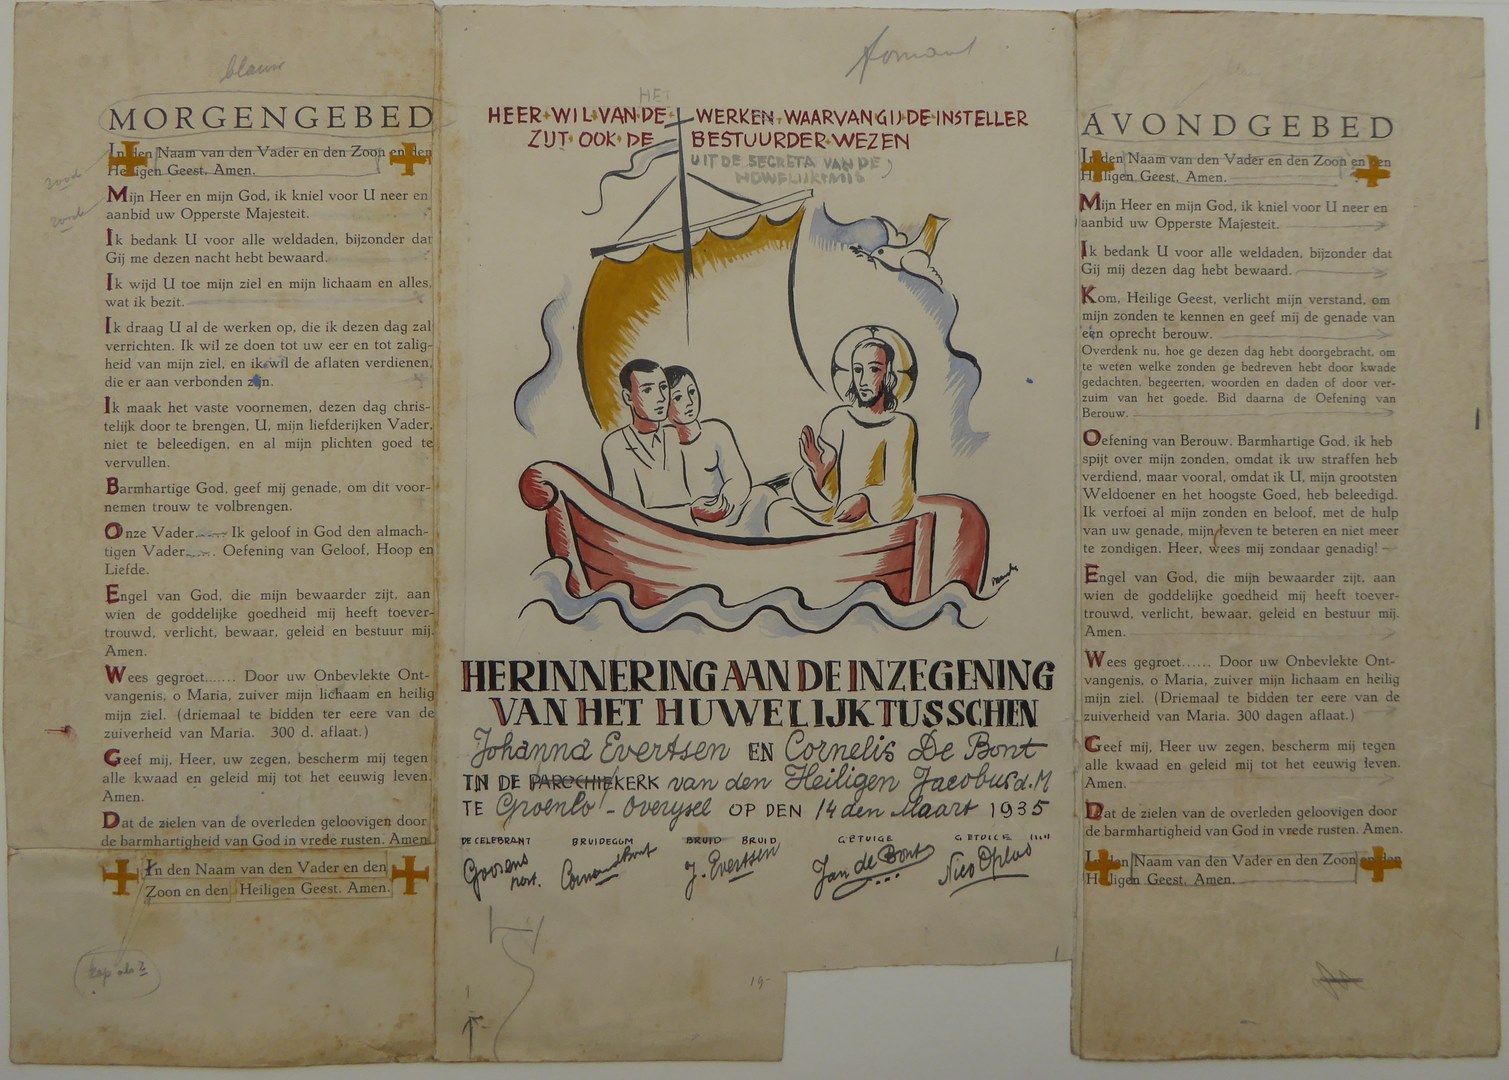 blauw
MORGENGEBED
In den Naam van den Vader en den Zoon en den
Heiligen Geest. Amen.
rood
rood
Mijn Heer en mijn God, ik kniel voor U neer en
aanbid uw Opperste Majesteit.
Ik bedank U voor alle weldaden, bijzonder dat
Gij me dezen nacht hebt bewaard.
Ik wijd U toe mijn ziel en mijn lichaam en alles,
wat ik bezit.
Ik draag U al de werken op, die ik dezen dag zal
verrichten. Ik wil ze doen tot uw eer en tot zalig-
heid van mijn ziel, en ik wil de aflaten verdienen,
die er aan verbonden zijn.
Ik maak het vaste voornemen, dezen dag chris-
telijk door te brengen, U, mijn liefderijken Vader,
niet te beleedigen, en al mijn plichten goed te
vervullen.
Barmhartige God, geef mij genade, om dit voor-
nemen trouw te volbrengen.
Onze Vader....... Ik geloof in God den almach-
tigen Vader...... Oefening van Geloof, Hoop en
Liefde.
Engel van God, die mijn bewaarder zijt, aan
wien de goddelijke goedheid mij heeft toever-
trouwd, verlicht, bewaar, geleid en bestuur mij.
Amen.
Wees gegroet....... Door uw Onbevlekte Ont-
vangenis, o Maria, zuiver mijn lichaam en heilig
mijn ziel. (driemaal te bidden ter eere van de
zuiverheid van Maria. 300 d. aflaat.)
Geef mij, Heer, uw zegen, bescherm mij tegen
alle kwaad en geleid mij tot het eeuwig leven.
Amen.
Dat de zielen van de overleden geloovigen door
de barmhartigheid van God in vrede rusten. Amen.
In den Naam van den Vader en den
Zoon en den Heiligen Geest. Amen.
HET
HEER WIL VAN DE WERKEN WAARVAN GIJ DE INSTELLER
ZIJT OOK DE BESTUURDER WEZEN
UIT DE SECRETA VAN DE
HUWELIJKSMIS
HERINNERING AAN DE INZEGENING
VAN HET HUWELIJK TUSSCHEN
Johanna Evertsen EN Cornelis De Bont
IN DE PAROCHIEKERK van den Heiligen Jacobus d. M
TE Groenlo - Overysel OP DEN 14 den Maart 1935
DE CELEBRANT BRUIDEGOM BRUID BRUID GETUIGE GETUIGE
Goosens J. Evertsen Jan de Bont
past.
19-
AVONDGEBED
In den Naam van den Vader en den Zoon en den
Heiligen Geest. Amen.
Mijn Heer en mijn God, ik kniel voor U neer en
aanbid uw Opperste Majesteit.
Ik bedank U voor alle weldaden, bijzonder dat
Gij mij dezen dag hebt bewaard.
Kom, Heilige Geest, verlicht mijn verstand, om
mijn zonden te kennen en geef mij de genade van
een oprecht berouw.
Overdenk nu, hoe ge dezen dag hebt doorgebracht, om
te weten welke zonden ge bedreven hebt door kwade
gedachten, begeerten, woorden en daden of door ver-
zuim van het goede. Bid daarna de Oefening van
Berouw.
Oefening van Berouw. Barmhartige God, ik heb
spijt over mijn zonden, omdat ik uw straffen heb
verdiend, maar vooral, omdat ik U, mijn grootsten
Weldoener en het hoogste Goed, heb beleedigd.
Ik verfoei al mijn zonden en beloof, met de hulp
van uw genade, mijn leven te beteren en niet meer
te zondigen. Heer, wees mij zondaar genadig!
Engel van God, die mijn bewaarder zijt, aan
wien de goddelijke goedheid mij heeft toever-
trouwd, verlicht, bewaar, geleid en bestuur mij.
Amen.
Wees gegroet...... Door uw Onbevlekte Ont-
vangenis, o Maria, zuiver mijn lichaam en heilig
mijn ziel. (Driemaal te bidden ter eere van de
zuiverheid van Maria. 300 dagen aflaat.)
Geef mij, Heer uw zegen, bescherm mij tegen
alle kwaad en geleid mij tot het eeuwig leven.
Amen.
Dat de zielen van de overleden geloovigen door
de barmhartigheid van God in vrede rusten. Amen.
In den Naam van den Vader en den Zoon en den
Heiligen Geest. Amen.